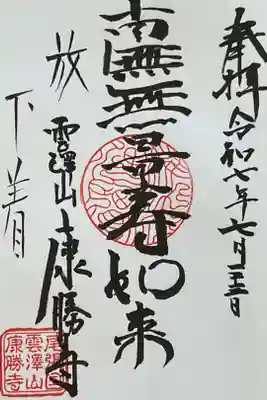 奉拝 令和七年七月二十三日
南無無量寿如来
放 雲澤山 康勝寺
下着
尾張国
雲澤山
康勝寺